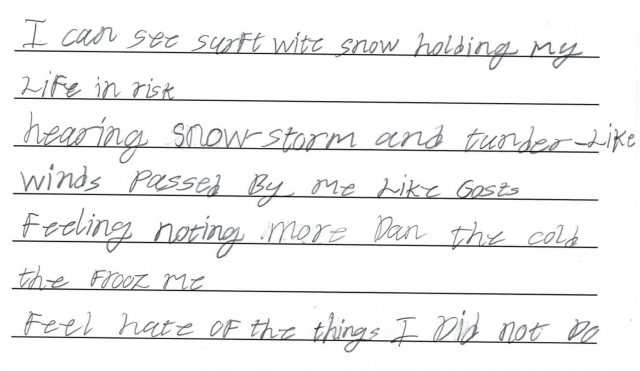 I can see surft wite snow holding my
Life in risk
hearing snow-storm and tunder-Like
winds passed By me Like Gosts
Feeling noting more Dan the cold
the Frooz me
Feel hate of the things I Did not Do